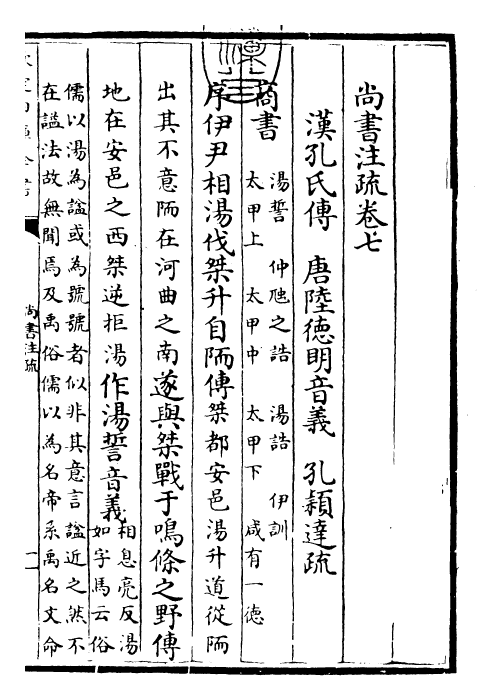 尚書注疏卷七
漢孔氏傳　唐陸德明音義　孔穎達疏
商書
湯誓　仲虺之誥　湯誥　伊訓
太甲上　太甲中　太甲下　咸有一德
序伊尹相湯伐桀升自陑傳桀都安邑湯升道從陑
出其不意陑在河曲之南遂與桀戰于鳴條之野傳
地在安邑之西桀逆拒湯作湯誓音義
相息亮反湯
如字馬云俗
儒以湯為諡或為號號者似非其意言諡近之然不
在諡法故無聞焉及禹俗儒以為名帝系禹名文命
尚書注疏
一